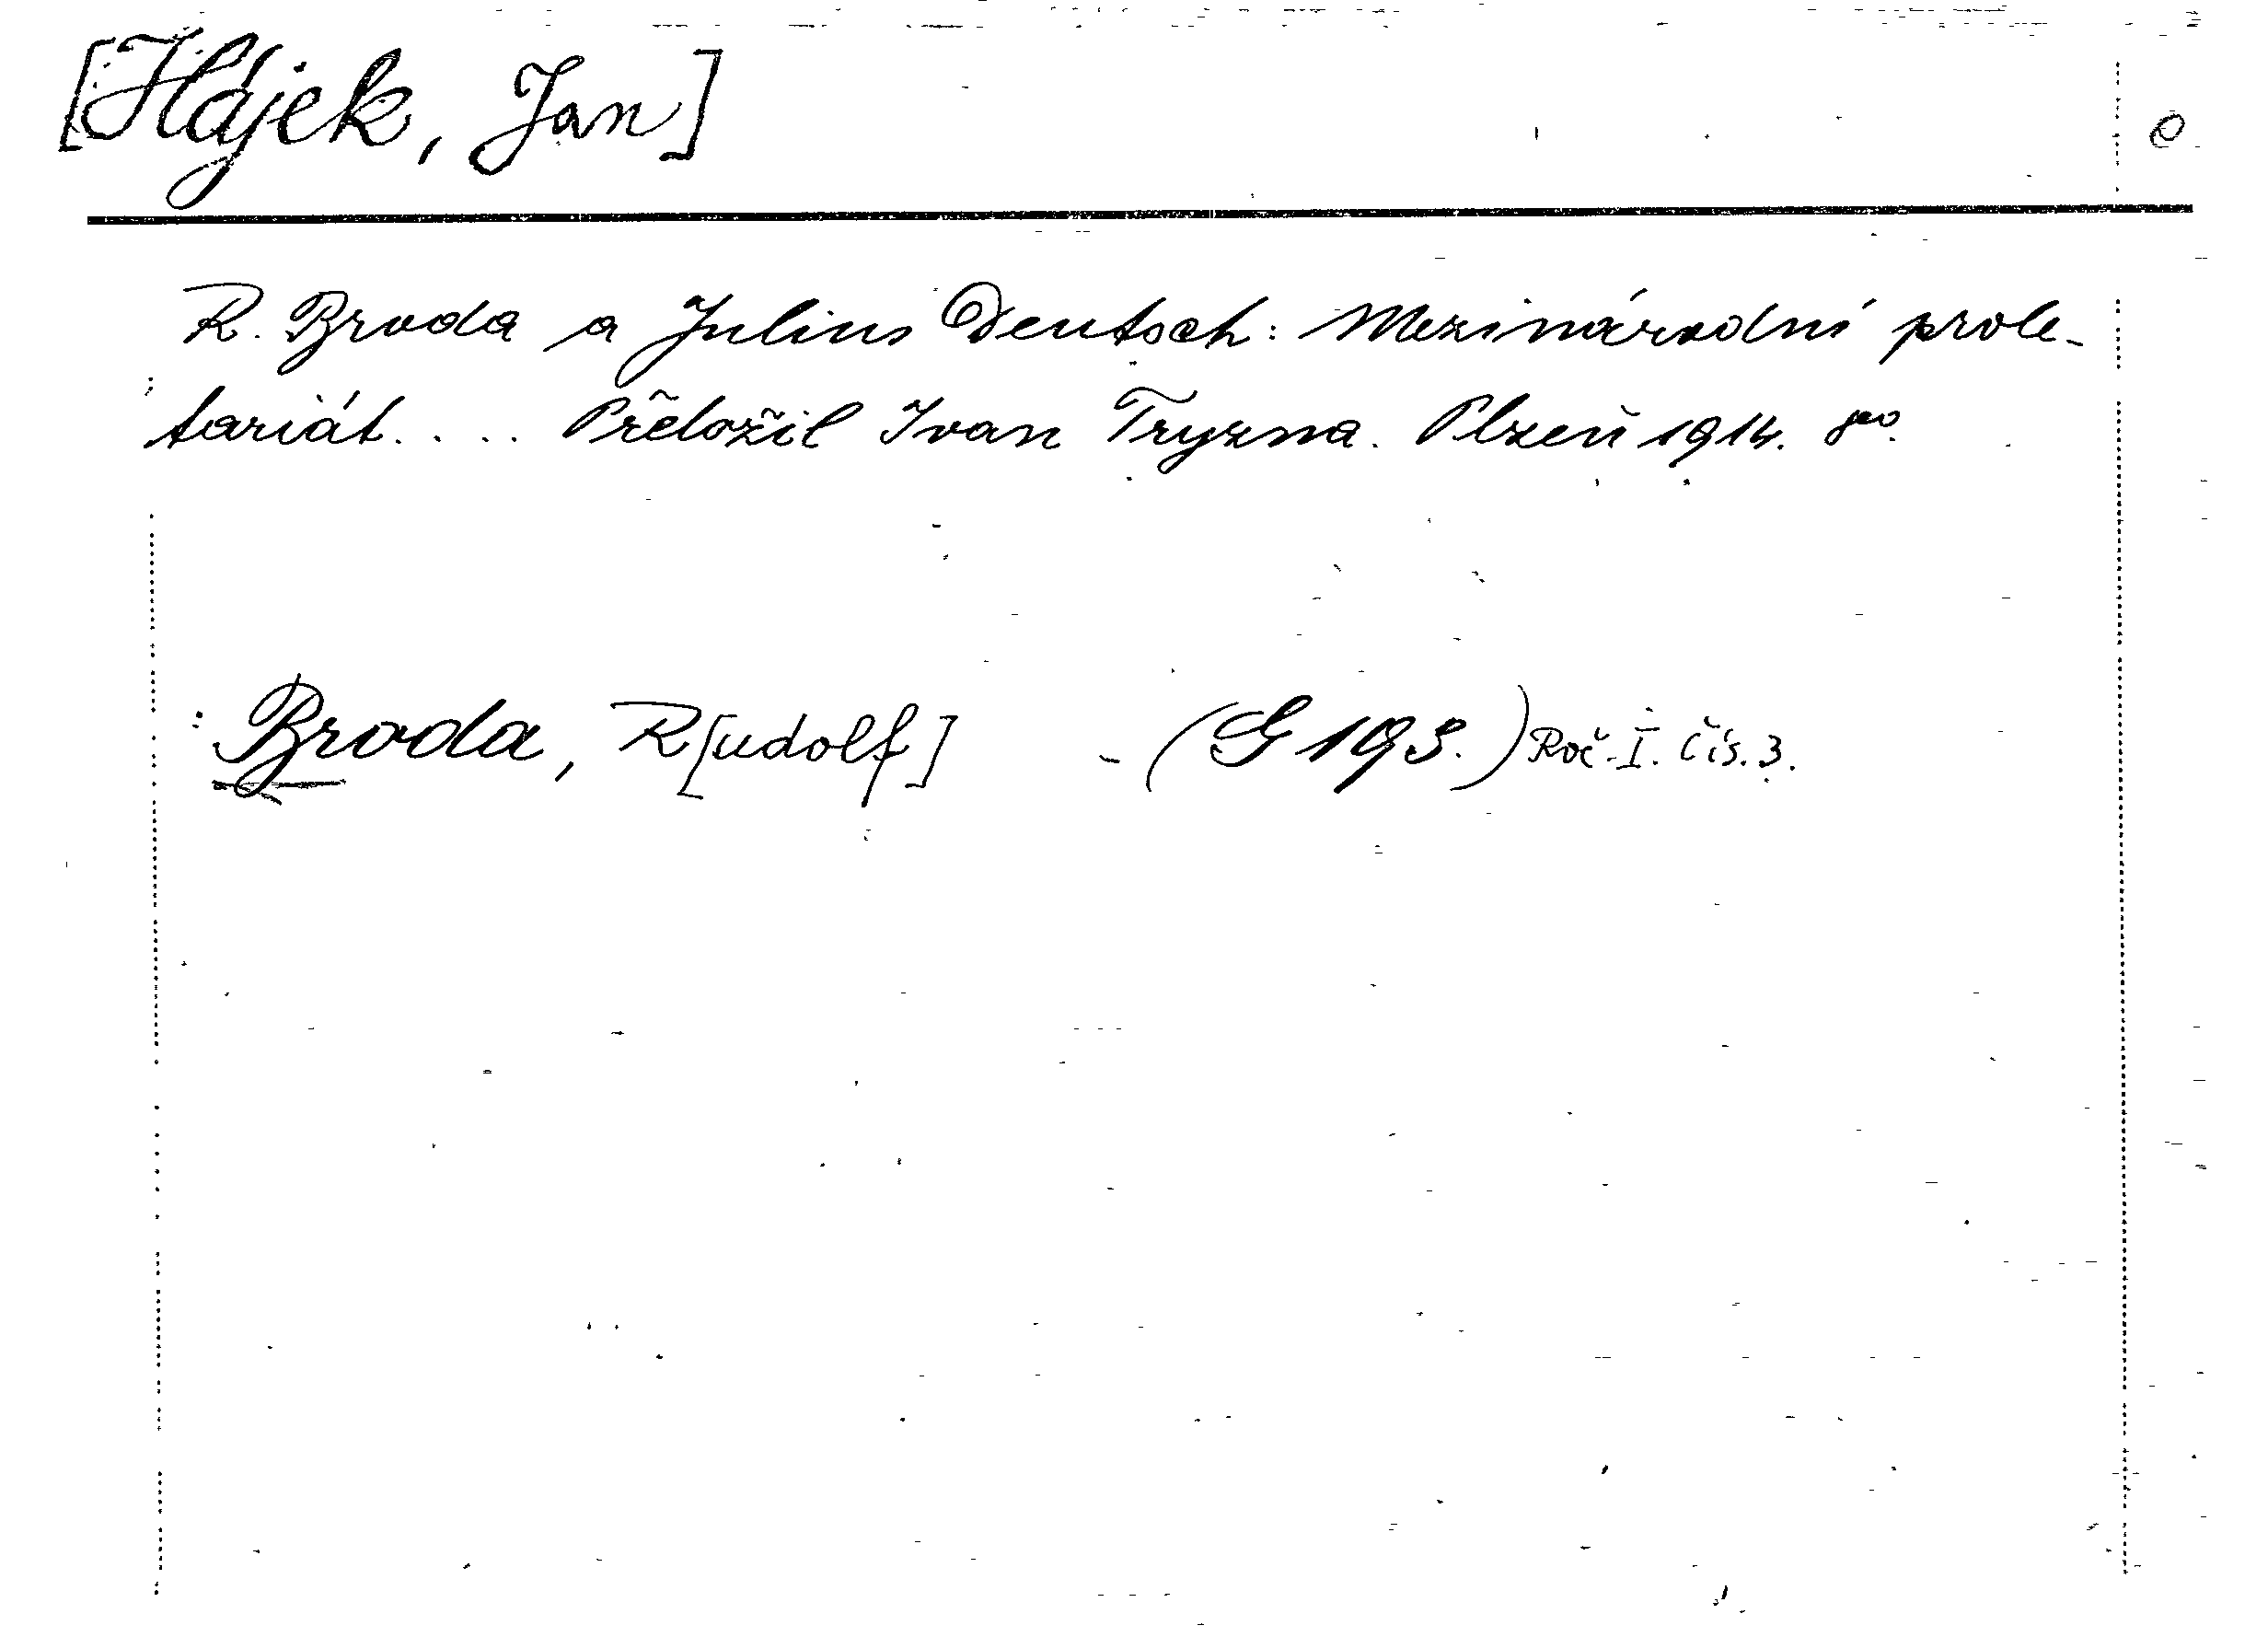 [Hájek, Jan]
R. Broda a Julius Deutsch: Mezinárodní prole-
tariát.... Přeložil Ivan Tryzna. Plzeň 1914. 8vo.
Broda, R[udolf] - (G 193.) Roč. I. Čís. 3.